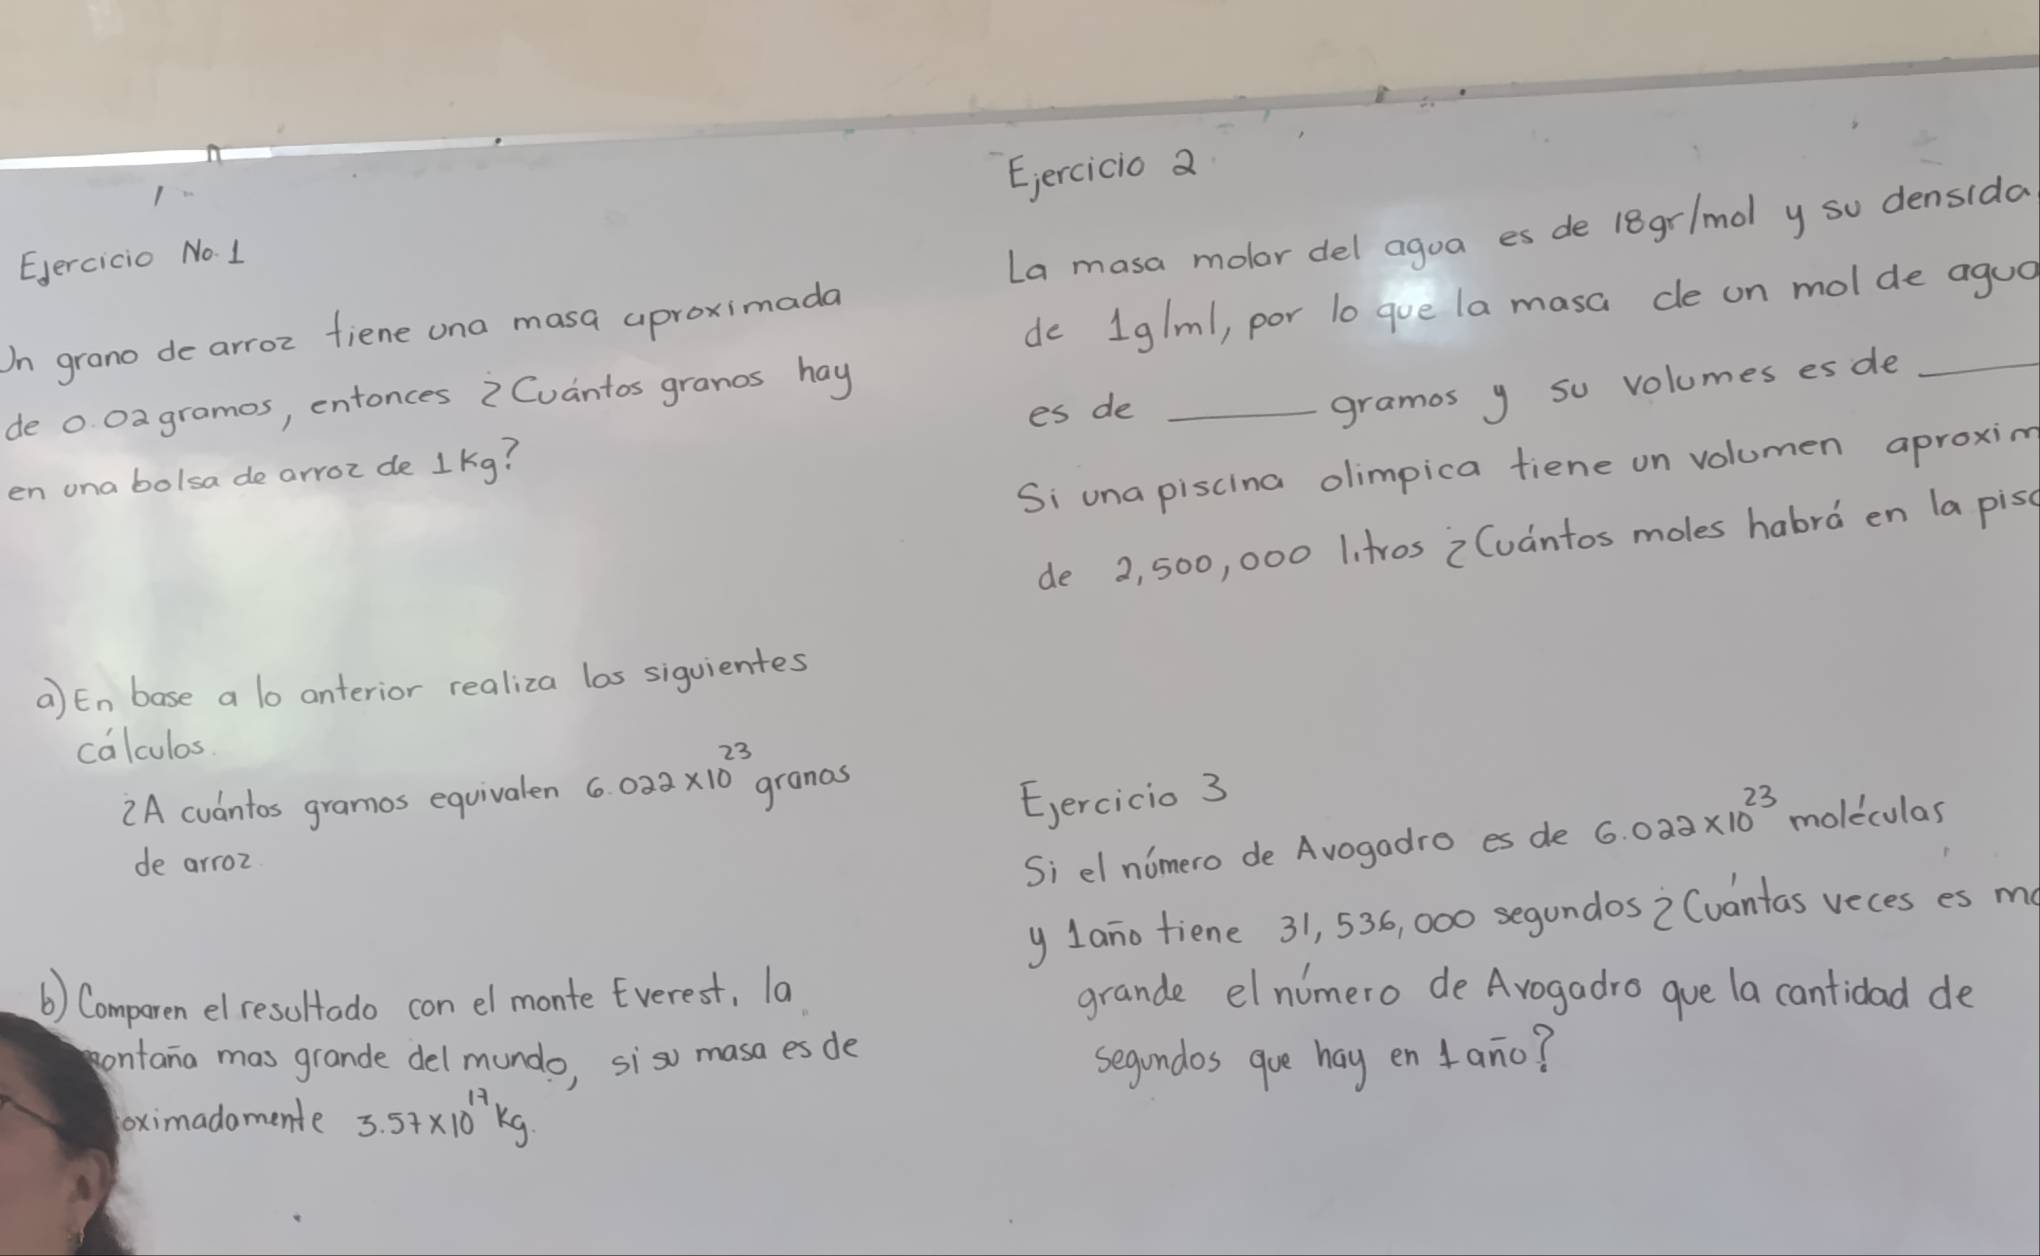 Ejercicio No. 1
Un grano de arroz tiene una masa aproximada
de 0.02 gramos, entonces ¿Cuántos granos hay
en una bolsa de arroz de 1 Kg?
a) En base a lo anterior realiza los siguientes
cálculos.
¿A cuántos gramos equivalen 6.022 x 10²³ granos
de arroz.
b) Comparen el resultado con el monte Everest, la
montaña mas grande del mundo, si su masa es de
oximadamente 3.57 x 10¹⁷ Kg.
Ejercicio 2
La masa molar del agua es de 18 gr/mol y su densida
de 1g/ml, por lo que la masa de un mol de agua
es de ______ gramos y su volumes es de ______
Si una piscina olimpica tiene un volumen aproxim
de 2,500,000 litros ¿Cuántos moles habrá en la pisc
Ejercicio 3
Si el número de Avogadro es de 6.022 x 10²³ moléculas
y 1 año tiene 31,536,000 segundos ¿Cuántas veces es
grande el número de Avogadro que la cantidad de
segundos que hay en 1 año?